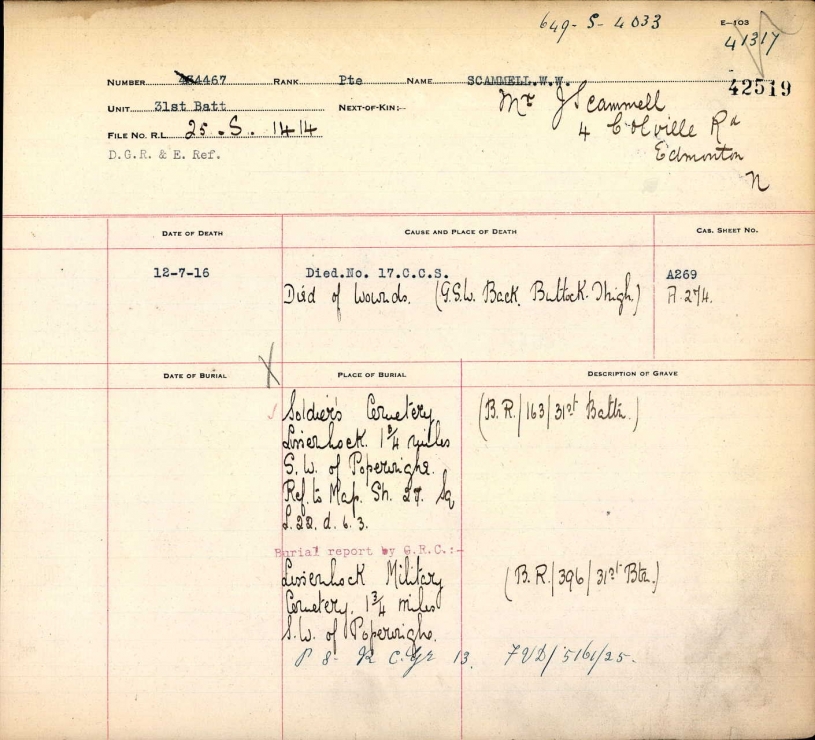 649-S-4033
E-103
41317
NUMBER 434467 RANK Pte NAME SCAMMELL.W.W.
42519
UNIT 31st Batt NEXT-OF-KIN:- Mr J Scammell
4 Colville Rd
FILE NO. R.L. 25.S.1414
Edmonton
D.G.R. & E. Ref.
N
DATE OF DEATH CAUSE AND PLACE OF DEATH CAS. SHEET NO.
12-7-16 Died.No. 17.C.C.S. A269
Died of Wounds. (G.S.W. Back. Buttock. Thigh.) A.274.
DATE OF BURIAL PLACE OF BURIAL DESCRIPTION OF GRAVE
Soldier's Cemetery (B.R./163/31st Battn.)
Lissenhock. 1 3/4 miles
S.W. of Poperinghe.
Ref. to Map. Sh. 27. Sq
L.22.d.6.3.
Burial report by G.R.C.:-
Lissenhock Military (B.R./396/31st Btn.)
Cemetery. 1 3/4 miles
S.W. of Poperinghe.
P 8- R C. Gr 13. 7VD/5161/25.